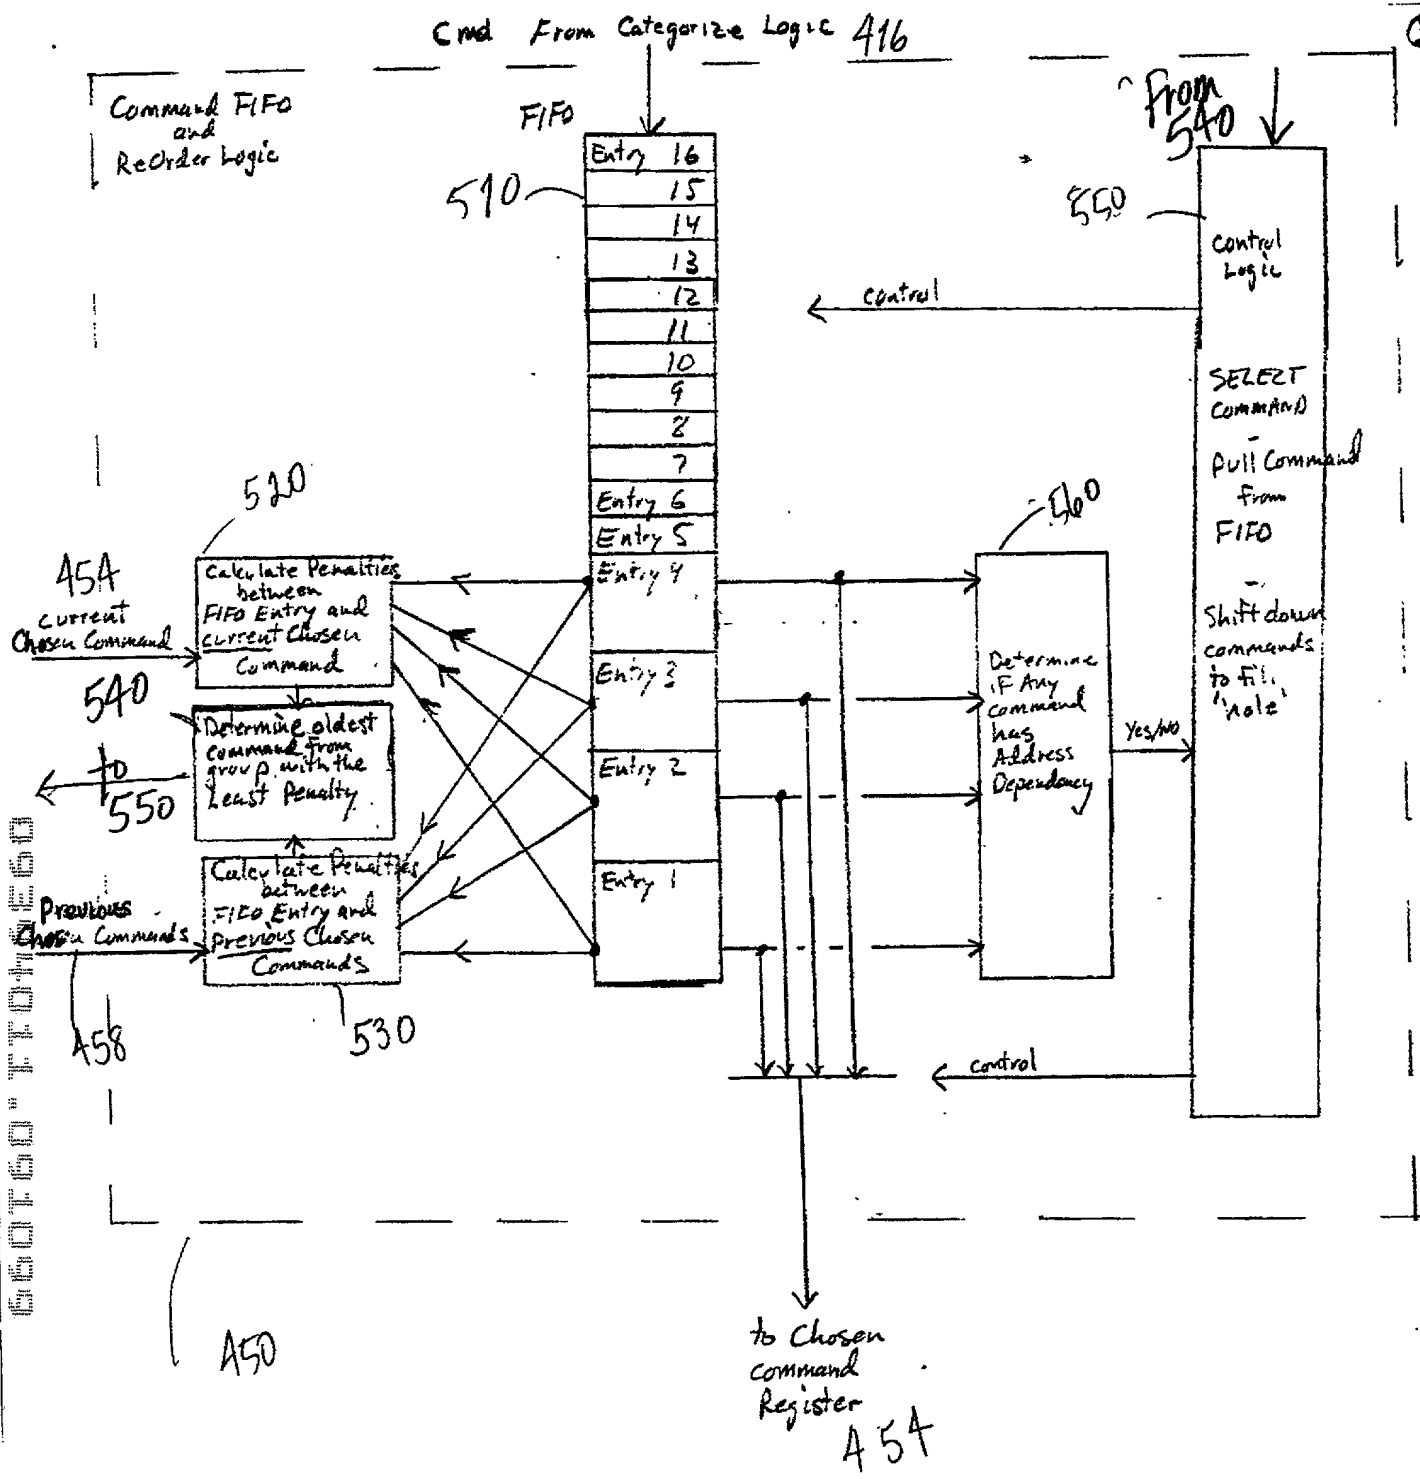 Cmd From Categorize Logic 416
Command FIFO
and
ReOrder Logic
FIFO
510
Entry 16
15
14
13
12
11
10
9
8
7
Entry 6
Entry 5
Entry 4
Entry 3
Entry 2
Entry 1
From
540
550
Control
Logic
SELECT
COMMAND
-
pull Command
from
FIFO
-
Shift down
commands
to fill
'hole'
control
520
454
current
Chosen Command
Calculate Penalties
between
FIFO Entry and
current Chosen
Command
540
Determine oldest
command from
group with the
Least Penalty
to
550
Calculate Penalties
between
FIFO Entry and
Previous Chosen
Commands
Previous
Chosen Commands
458
530
560
Determine
if Any
command
has
Address
Dependency
Yes/No
control
450
to Chosen
command
Register
454